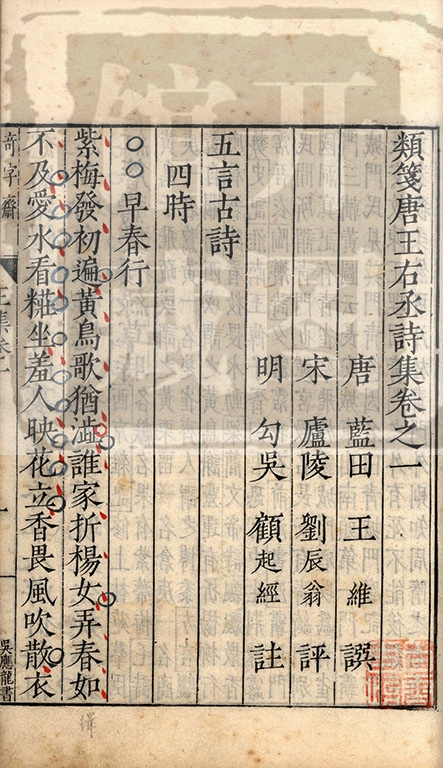 類箋唐王右丞詩集卷之一
唐藍田王維譔
宋廬陵劉辰翁評
明勾吳顧起經註
五言古詩
四時
早春行
紫梅發初遍黃鳥歌猶澁誰家折楊女弄春如
不及愛水看糚坐羞人映花立香畏風吹散衣
奇字齋
王集卷一
一
吳應龍書